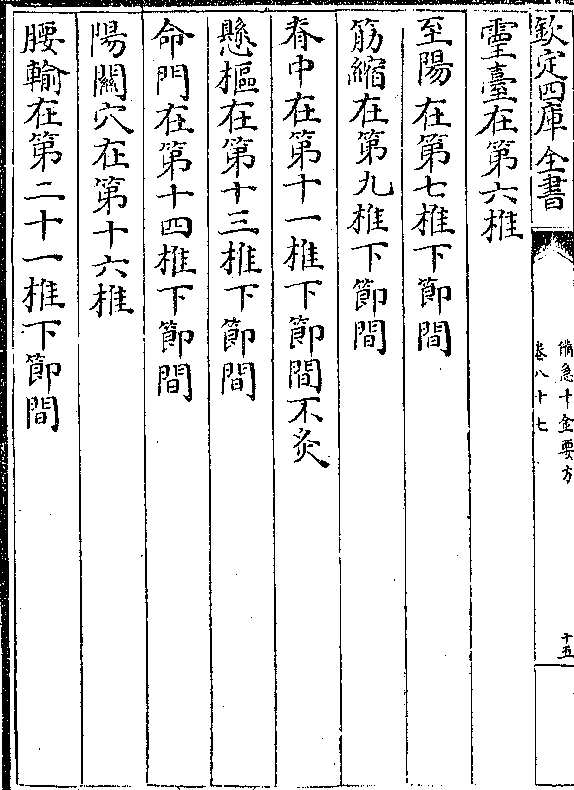 欽定四庫全書
備急千金要方
卷八十七
十五
靈臺在第六椎
至陽在第七椎下節間
筋縮在第九椎下節間
脊中在第十一椎下節間不灸
懸樞在第十三椎下節間
命門在第十四椎下節間
陽關穴在第十六椎
腰輸在第二十一椎下節間